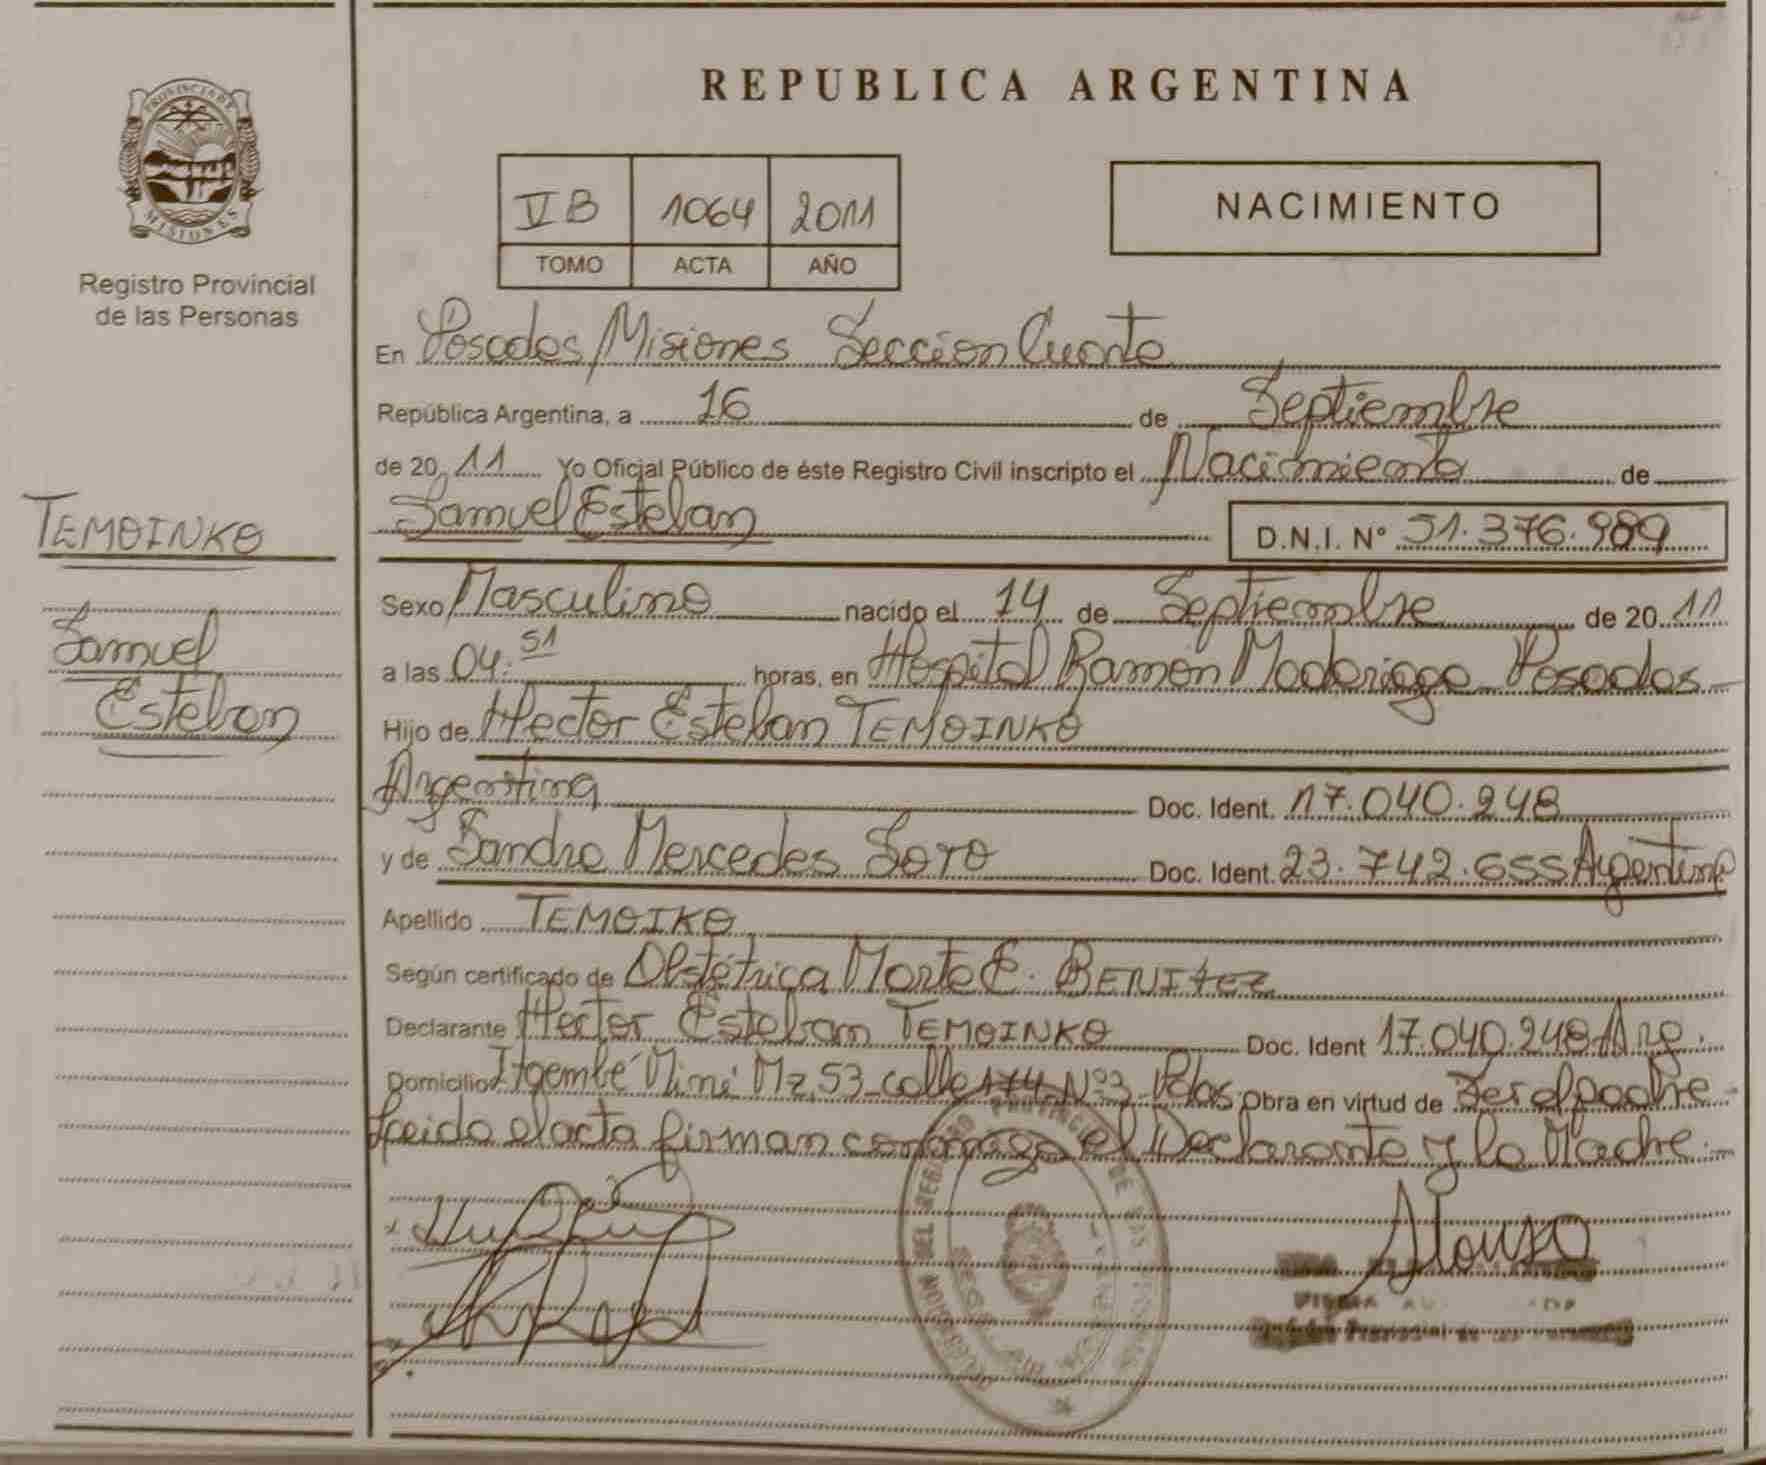 REPUBLICA ARGENTINA
PROVINCIA DE
MISIONES
Registro Provincial
de las Personas
VB 1064 2011
TOMO ACTA AÑO
NACIMIENTO
En Posadas, Misiones Sección Cuarta
República Argentina, a 16 de Septiembre
de 2011 Yo Oficial Público de éste Registro Civil inscripto el Nacimiento de
Samuel Esteban D.N.I. Nº 51.376.989
TEMOINKO
Samuel
Esteban
Sexo Masculino nacido el 14 de Septiembre de 2011
a las 04:51 horas, en Hospital Ramón Madariaga Posadas
Hijo de Hector Esteban TEMOINKO
Argentina Doc. Ident. 17.040.248
y de Sandra Mercedes SOTO Doc. Ident. 23.742.655 Argentina
Apellido TEMOIKO
Según certificado de Obstétrica Marta E. BENITEZ
Declarante Hector Esteban TEMOINKO Doc. Ident 17.040.248 Arg.
Domicilio Itaembé Miní Mz. 53 calle 174 Nº3 Pdas Obra en virtud de Ser el padre
Leida el acta firman conmigo el Declarante y la Madre.
Alonso